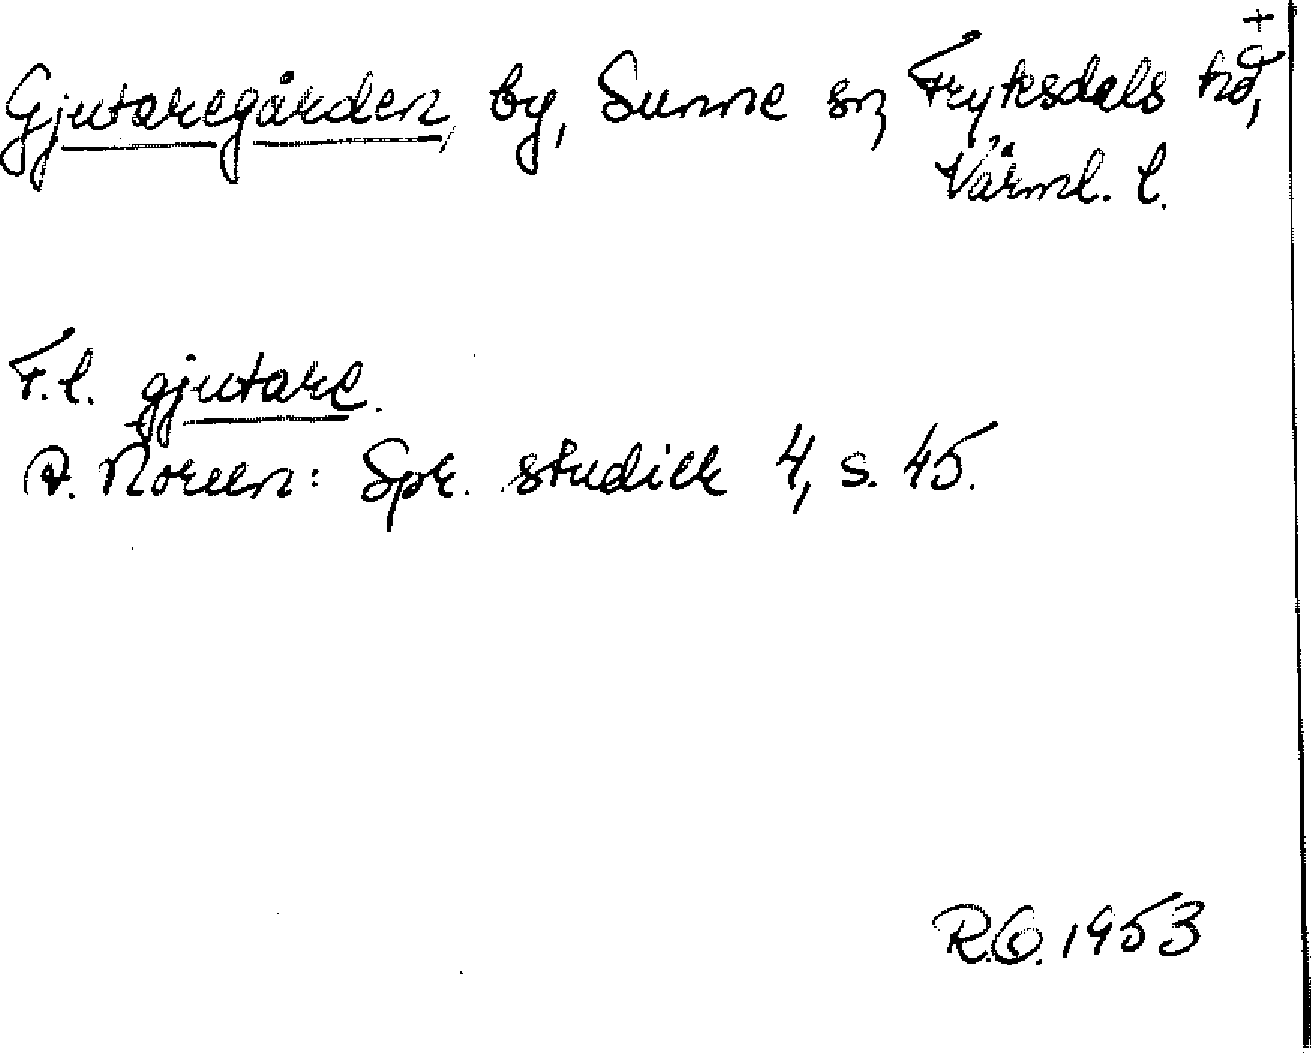 +
Gjutaregården, by, Sunne sn, Fryksdals hd,
Värml. l.
F.l. gjutare.
A. Noreen: Spr. studier 4, s. 45.
R.O. 1953